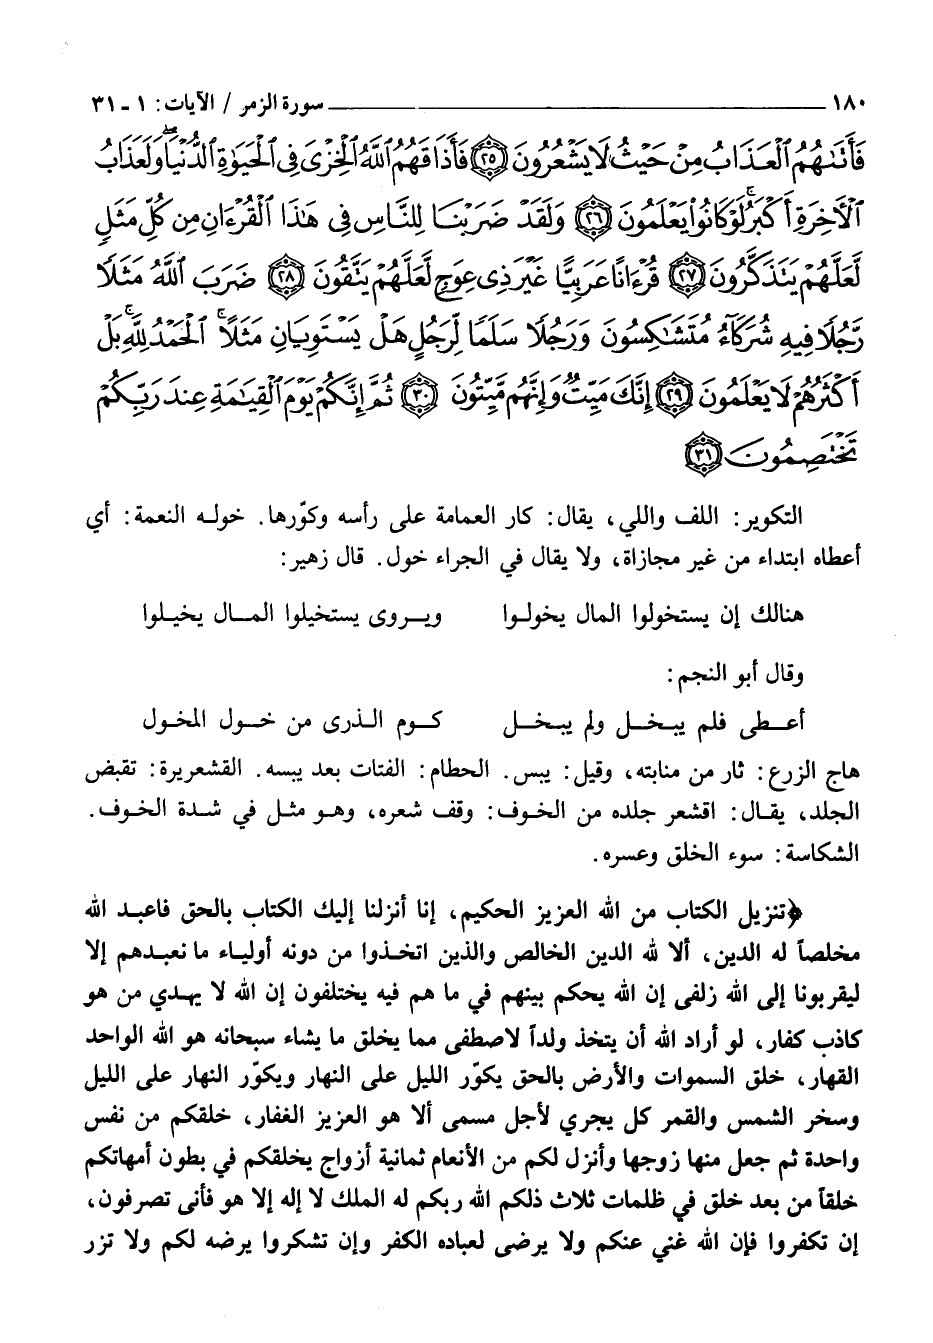 ١٨٠ سورة الزمر / الآيات: ١ ـ ٣١
فَأَتَىٰهُمُ ٱلْعَذَابُ مِنْ حَيْثُ لَا يَشْعُرُونَ ٢٥ فَأَذَاقَهُمُ ٱللَّهُ ٱلْخِزْىَ فِى ٱلْحَيَوٰةِ ٱلدُّنْيَا ۖ وَلَعَذَابُ
ٱلْأَخِرَةِ أَكْبَرُ ۚ لَوْ كَانُوا۟ يَعْلَمُونَ ٢٦ وَلَقَدْ ضَرَبْنَا لِلنَّاسِ فِى هَٰذَا ٱلْقُرْءَانِ مِن كُلِّ مَثَلٍ
لَّعَلَّهُمْ يَتَذَكَّرُونَ ٢٧ قُرْءَانًا عَرَبِيًّا غَيْرَ ذِى عِوَجٍ لَّعَلَّهُمْ يَتَّقُونَ ٢٨ ضَرَبَ ٱللَّهُ مَثَلًا
رَّجُلًا فِيهِ شُرَكَآءُ مُتَشَٰكِسُونَ وَرَجُلًا سَلَمًا لِّرَجُلٍ هَلْ يَسْتَوِيَانِ مَثَلًا ۚ ٱلْحَمْدُ لِلَّهِ ۚ بَلْ
أَكْثَرُهُمْ لَا يَعْلَمُونَ ٢٩ إِنَّكَ مَيِّتٌ وَإِنَّهُم مَّيِّتُونَ ٣٠ ثُمَّ إِنَّكُمْ يَوْمَ ٱلْقِيَٰمَةِ عِندَ رَبِّكُمْ
تَخْتَصِمُونَ ٣١
التكوير: اللف واللي، يقال: كار العمامة على رأسه وكوّرها. خوله النعمة: أي
أعطاه ابتداء من غير مجازاة، ولا يقال في الجراء خول. قال زهير:
هنالك إن يستخولوا المال يخولوا ويروى يستخيلوا المال يخيلوا
وقال أبو النجم:
أعطى فلم يبخل ولم يبخل كوم الذرى من خول المخول
هاج الزرع: ثار من منابته، وقيل: يبس. الحطام: الفتات بعد يبسه. القشعريرة: تقبض
الجلد، يقال: اقشعر جلده من الخوف: وقف شعره، وهو مثل في شدة الخوف.
الشكاسة: سوء الخلق وعسره.
﴿تنزيل الكتاب من الله العزيز الحكيم، إنا أنزلنا إليك الكتاب بالحق فاعبد الله
مخلصاً له الدين، ألا لله الدين الخالص والذين اتخذوا من دونه أولياء ما نعبدهم إلا
ليقربونا إلى الله زلفى إن الله يحكم بينهم في ما هم فيه يختلفون إن الله لا يهدي من هو
كاذب كفار، لو أراد الله أن يتخذ ولداً لاصطفى مما يخلق ما يشاء سبحانه هو الله الواحد
القهار، خلق السموات والأرض بالحق يكوّر الليل على النهار ويكوّر النهار على الليل
وسخر الشمس والقمر كل يجري لأجل مسمى ألا هو العزيز الغفار، خلقكم من نفس
واحدة ثم جعل منها زوجها وأنزل لكم من الأنعام ثمانية أزواج يخلقكم في بطون أمهاتكم
خلقاً من بعد خلق في ظلمات ثلاث ذلكم الله ربكم له الملك لا إله إلا هو فأنى تصرفون،
إن تكفروا فإن الله غني عنكم ولا يرضى لعباده الكفر وإن تشكروا يرضه لكم ولا تزر